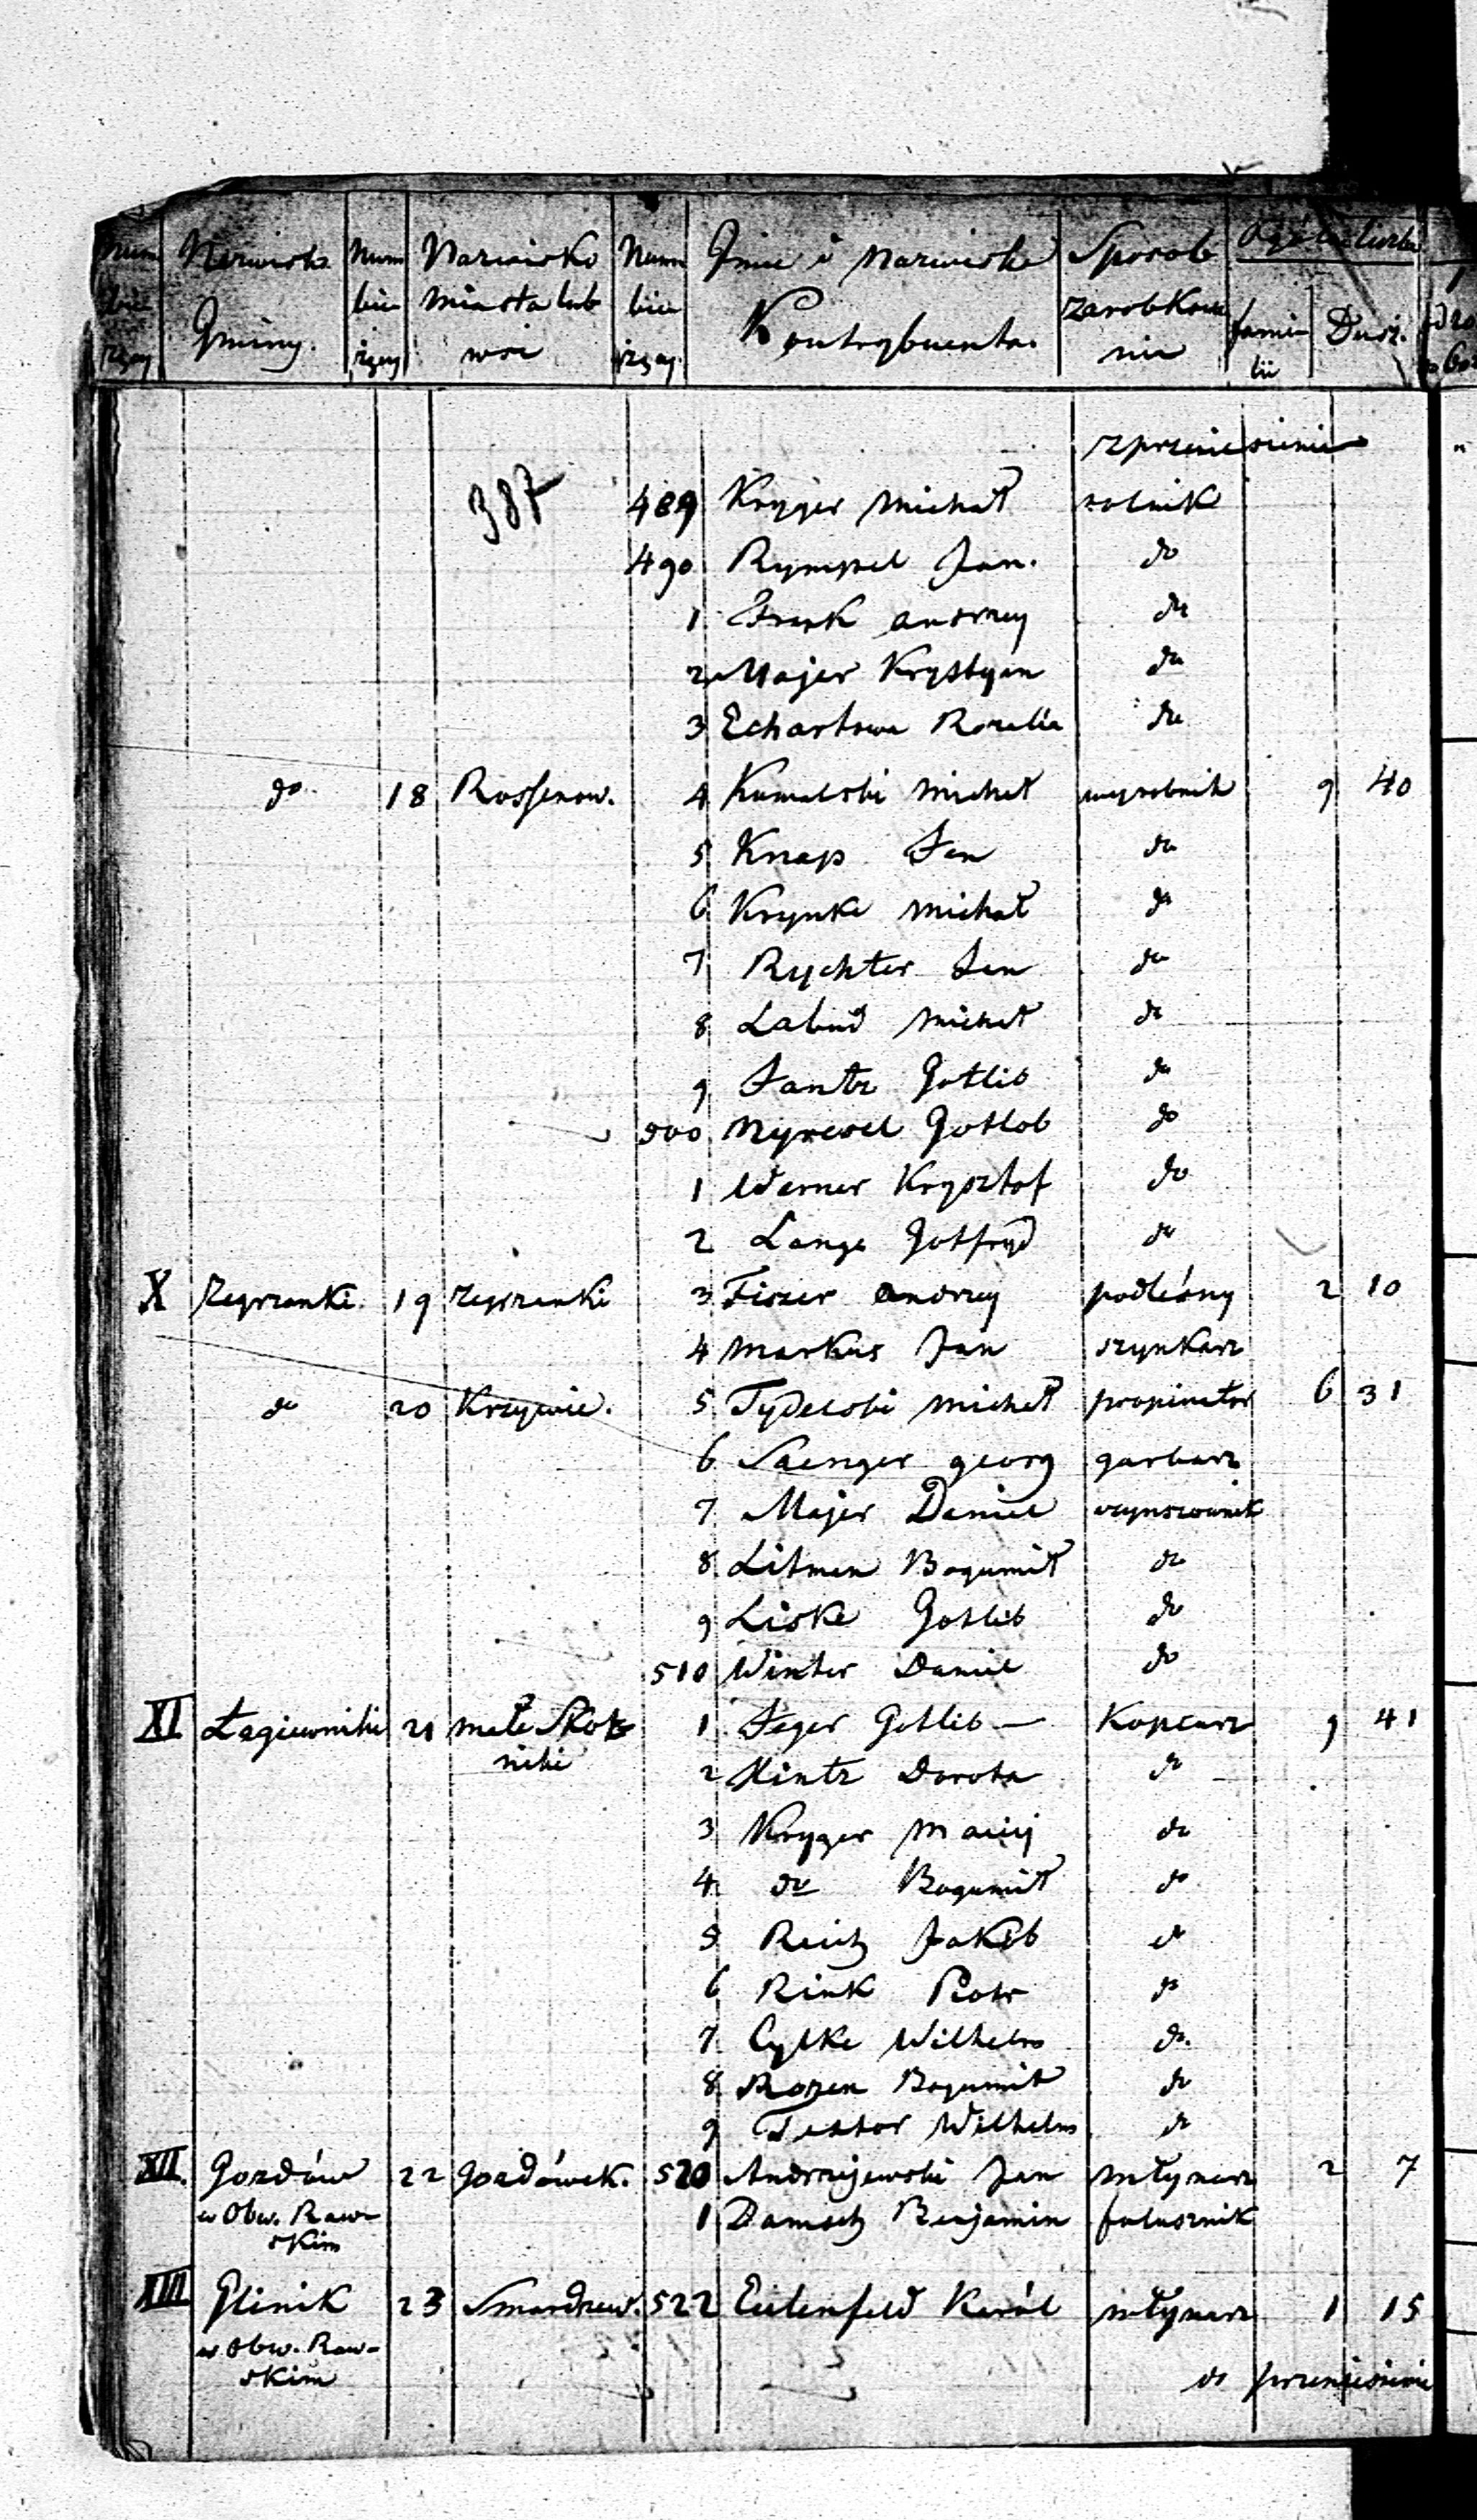 Num Nazwisko Num Nazwisko Num Jmie i Nazwisko Sposob Ogólna liczba
bie bie miasta lub bie zarobkowa
żący Gminy. żący wsi żący. Kontrybuenta. nia familii Dusz.
z przeniesienia
387
489 Kryger Michał rolnik
490 Rympel Jan. do
1 Frank Andrzey do
2 Majer Krystyan do
3 Echartowa Rozalia do
do 18 Rossenow. 4 Kumalski Michał wyrobnik 9 40
5 Knap Jan do
6 Krynke Michał do
7 Rychter Jan do
8 Labud Michał do
9 Jantz Gotlib do
500 Gotlob do
1 Werner Krysztof do
2 Lange Gotfryd do
X Zegrzanki. 19 Zegrzanki 3 Fiszer Andrzey podleśny 2 10
4 Markus Jan szynkarz
do 20 Krzywie. 5 Tydelski Michał propinator 6 31
6 Saenger Georg garbarz
7 Majer Daniel czynszownik
8 Litman Bogumił do
9 Liske Gotlib do
510 Winter Daniel do
XI Łagiewniki 21 Małe Skot- 1 Jeger Gotlib — Kopcarz 9 41
niki
2 Hintz Dorota do
3 Kryger Maciij do
4 do Bogumił do
5 Reitz Jakób do
6 Rink Piotr do
7 Cylke Wilhelm do.
8 Rozen Bogumił do
9 Testor Wilhelm do
XII. Gozdów 22 Gozdówek. 520 Andrzejewski Jan młynarz 2 7
w Obw. Raw- 1 Damsch Benjamin foluznik
skim
XIII Glinik 23 Smardzew. 522 Eulenfeld Karól młynarz 1 15
w Obw. Raw-
skim
do przeniesienia